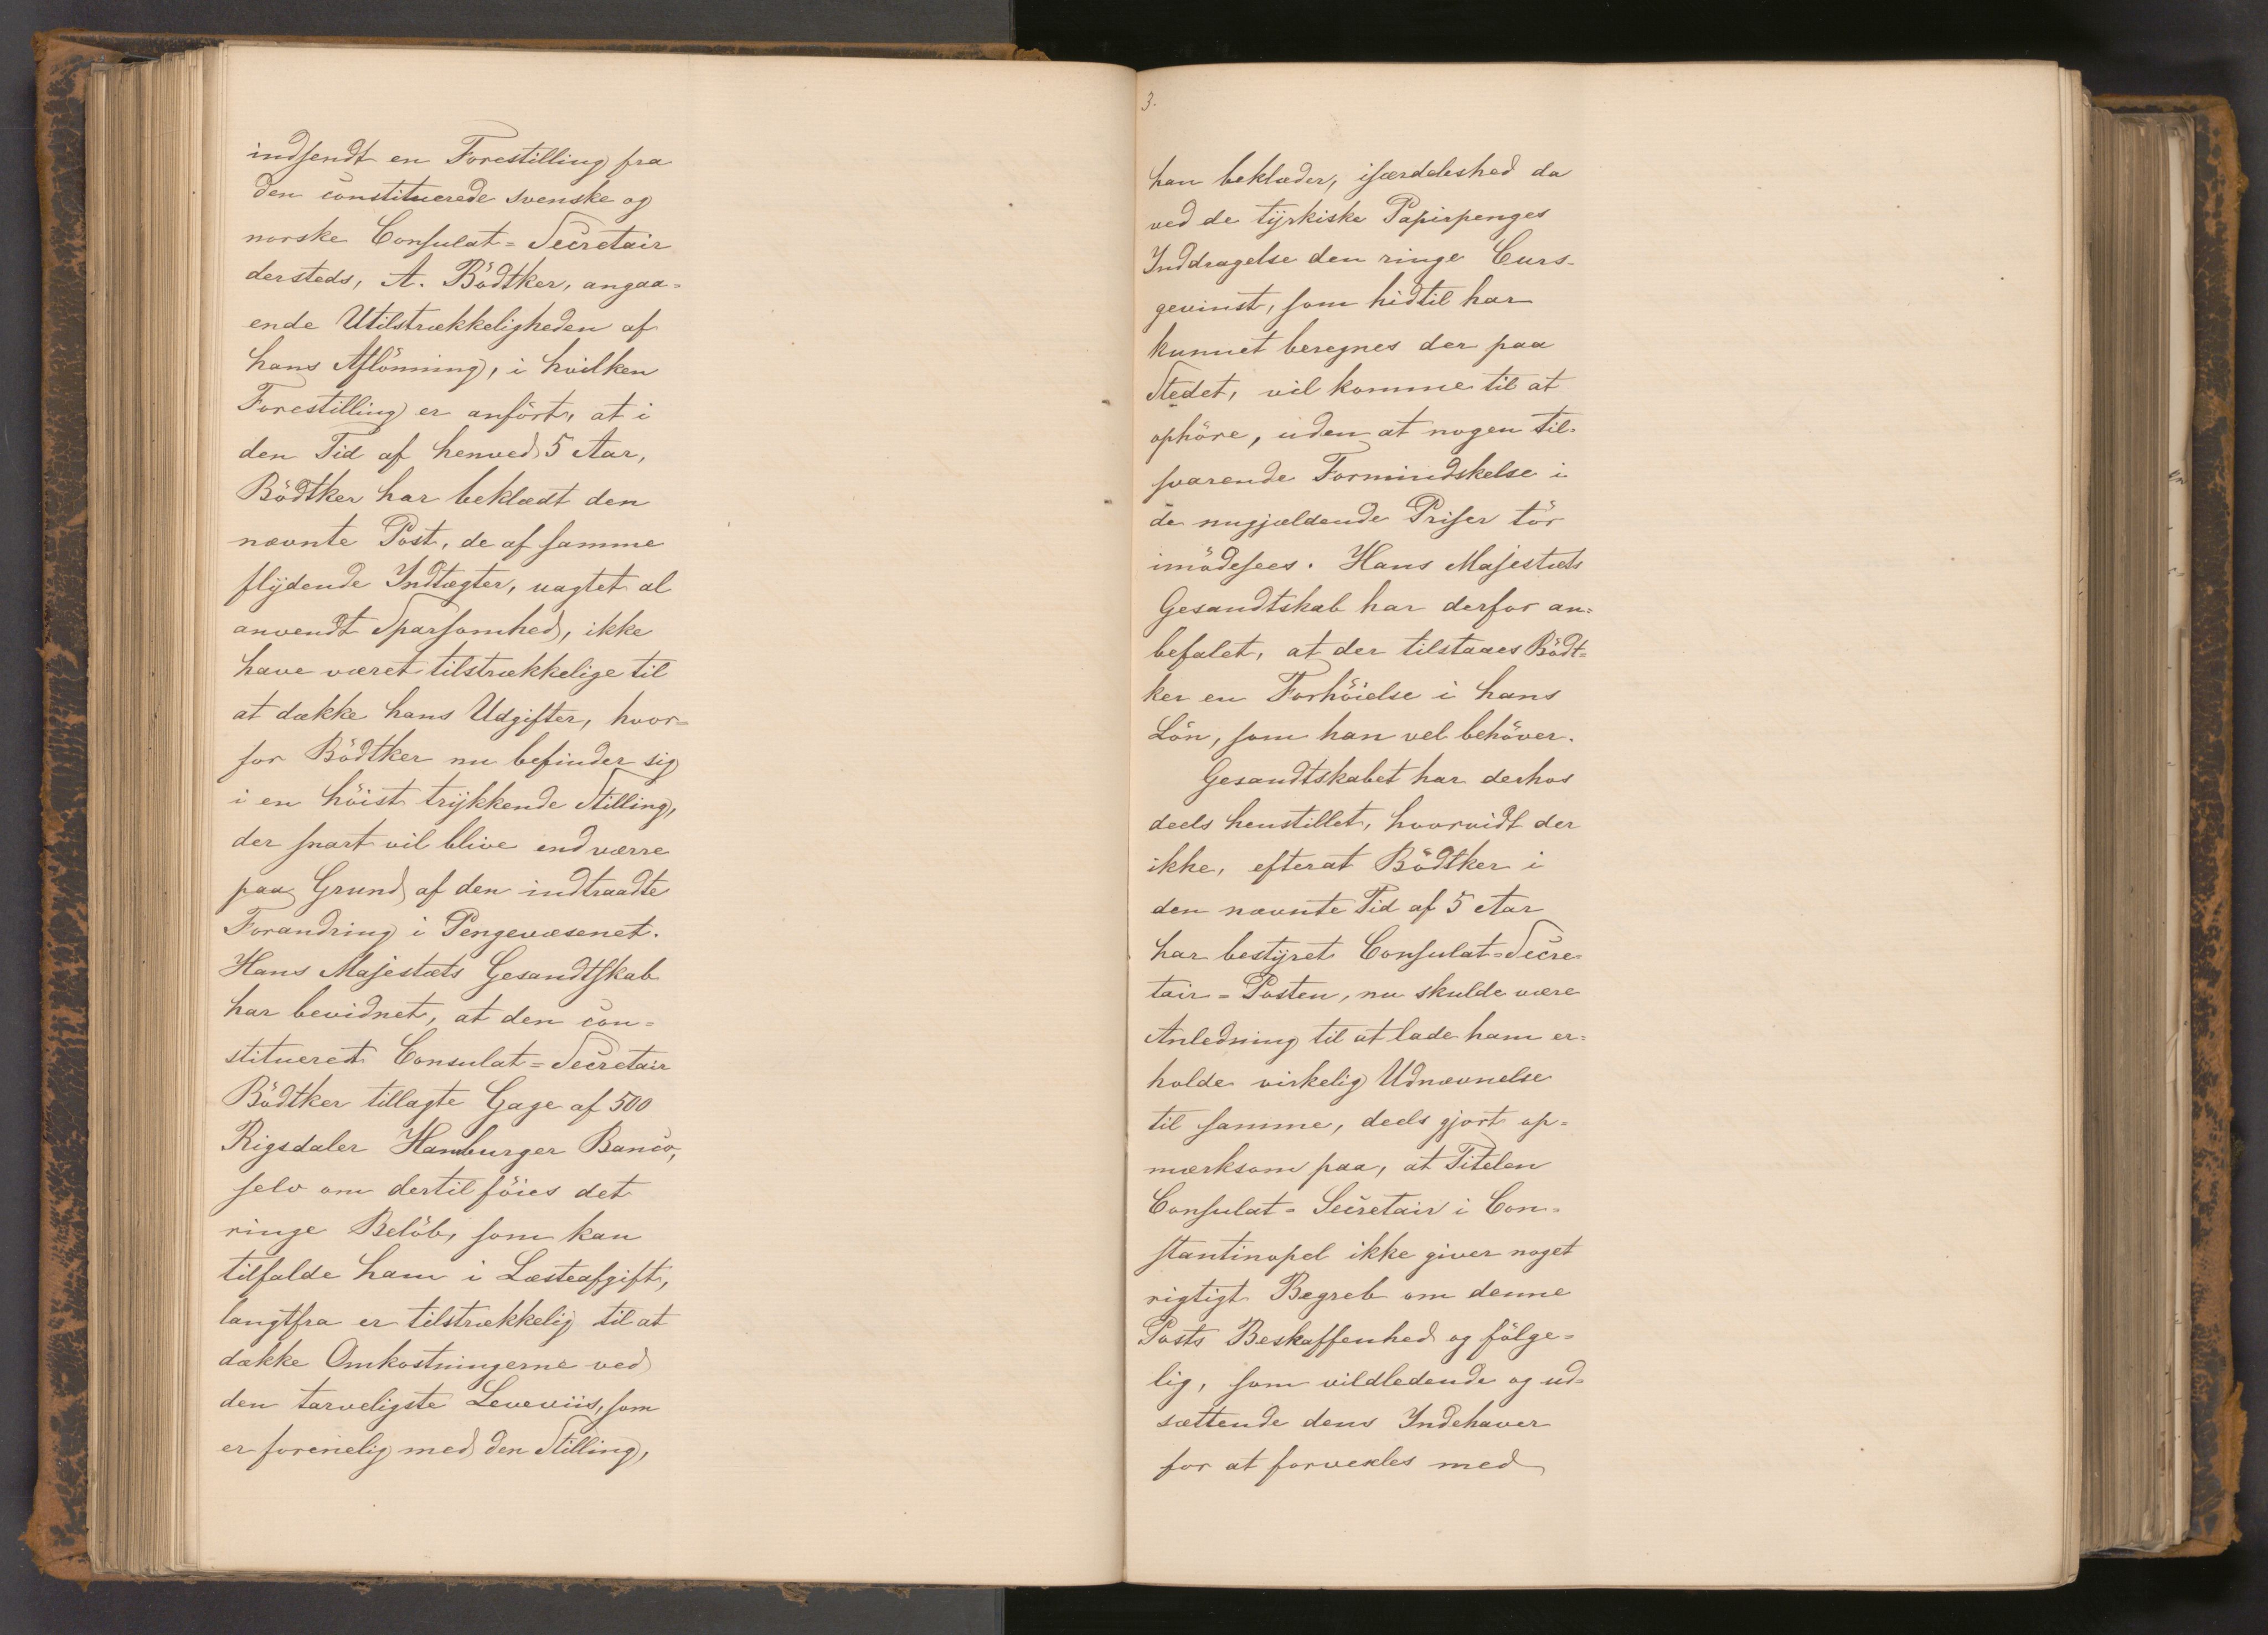 indsendt en Forestilling fra
den constituerede svenske og
norske Consulat= Secretair
dersteds, A. Bödtker, angaa=
ende Utilstrækkeligheden af
hans Aflönning, i hvilken
Forestilling er anfört, at i
den Tid af henved 5 Aar,
Bödtker har beklædt den
nævnte Post, de af samme
flydende Indtægter, uagtet al
anvendt Sparsomhed, ikke
have været tilstrækkelige til
at dække hans Udgifter, hvor=
for Bödtker nu befinder sig
i en höist trykkende Stilling,
der snart vil blive end værre
paa Grund af den indtraadte
Forandring i Pengevæsenet.
Hans Majestæts Gesandtskab
har bevidnet, at den con=
stitueret Consulat=Secretair
Bödtker tillagte Gage af 500
Rigsdaler Hamburger Banco,
selv om dertil föies det
ringe Belöb, som kan
tilfalde ham i Læsteafgift,
langtfra er tilstrækkelig til at
dække Omkostningerne ved
den tarveligste Leveviis, som
er forenelig med den Stilling,
3.
han beklæder, isærdeleshed da
ved de tyrkiske Papirpenges
Inddragelse den ringe Curs-
gevinst, som hidtil har
kunnet beregnes der paa
Stedet, vil komme til at
ophöre, uden at nogen til=
svarende Formindskelse i
de nugjældende Priser tör
imödesees. Hans Majestæts
Gesandtskab har derfor an=
befalet, at der tilstaaes Bödt=
ker en Forhöielse i hans
Lön, som han vel behöver.
Gesandtskabet har derhos
deels henstillet, hvorvidt der
ikke, efterat Bödtker i
den nævnte Tid af 5 Aar
har bestyret Consulat=Secre=
tair=Posten, nu skulde være
Anledning til at lade ham er=
holde virkelig Udnævnelse
til samme, deels gjort op=
mærksom paa, at Titelen
Consulat= Secretair i Con=
stantinopel ikke giver noget
rigtigt Begreb om denne
Posts Beskaffenhed og fölge=
lig, som vildledende og ud=
sættende dens Indehaver
for at forvexles med